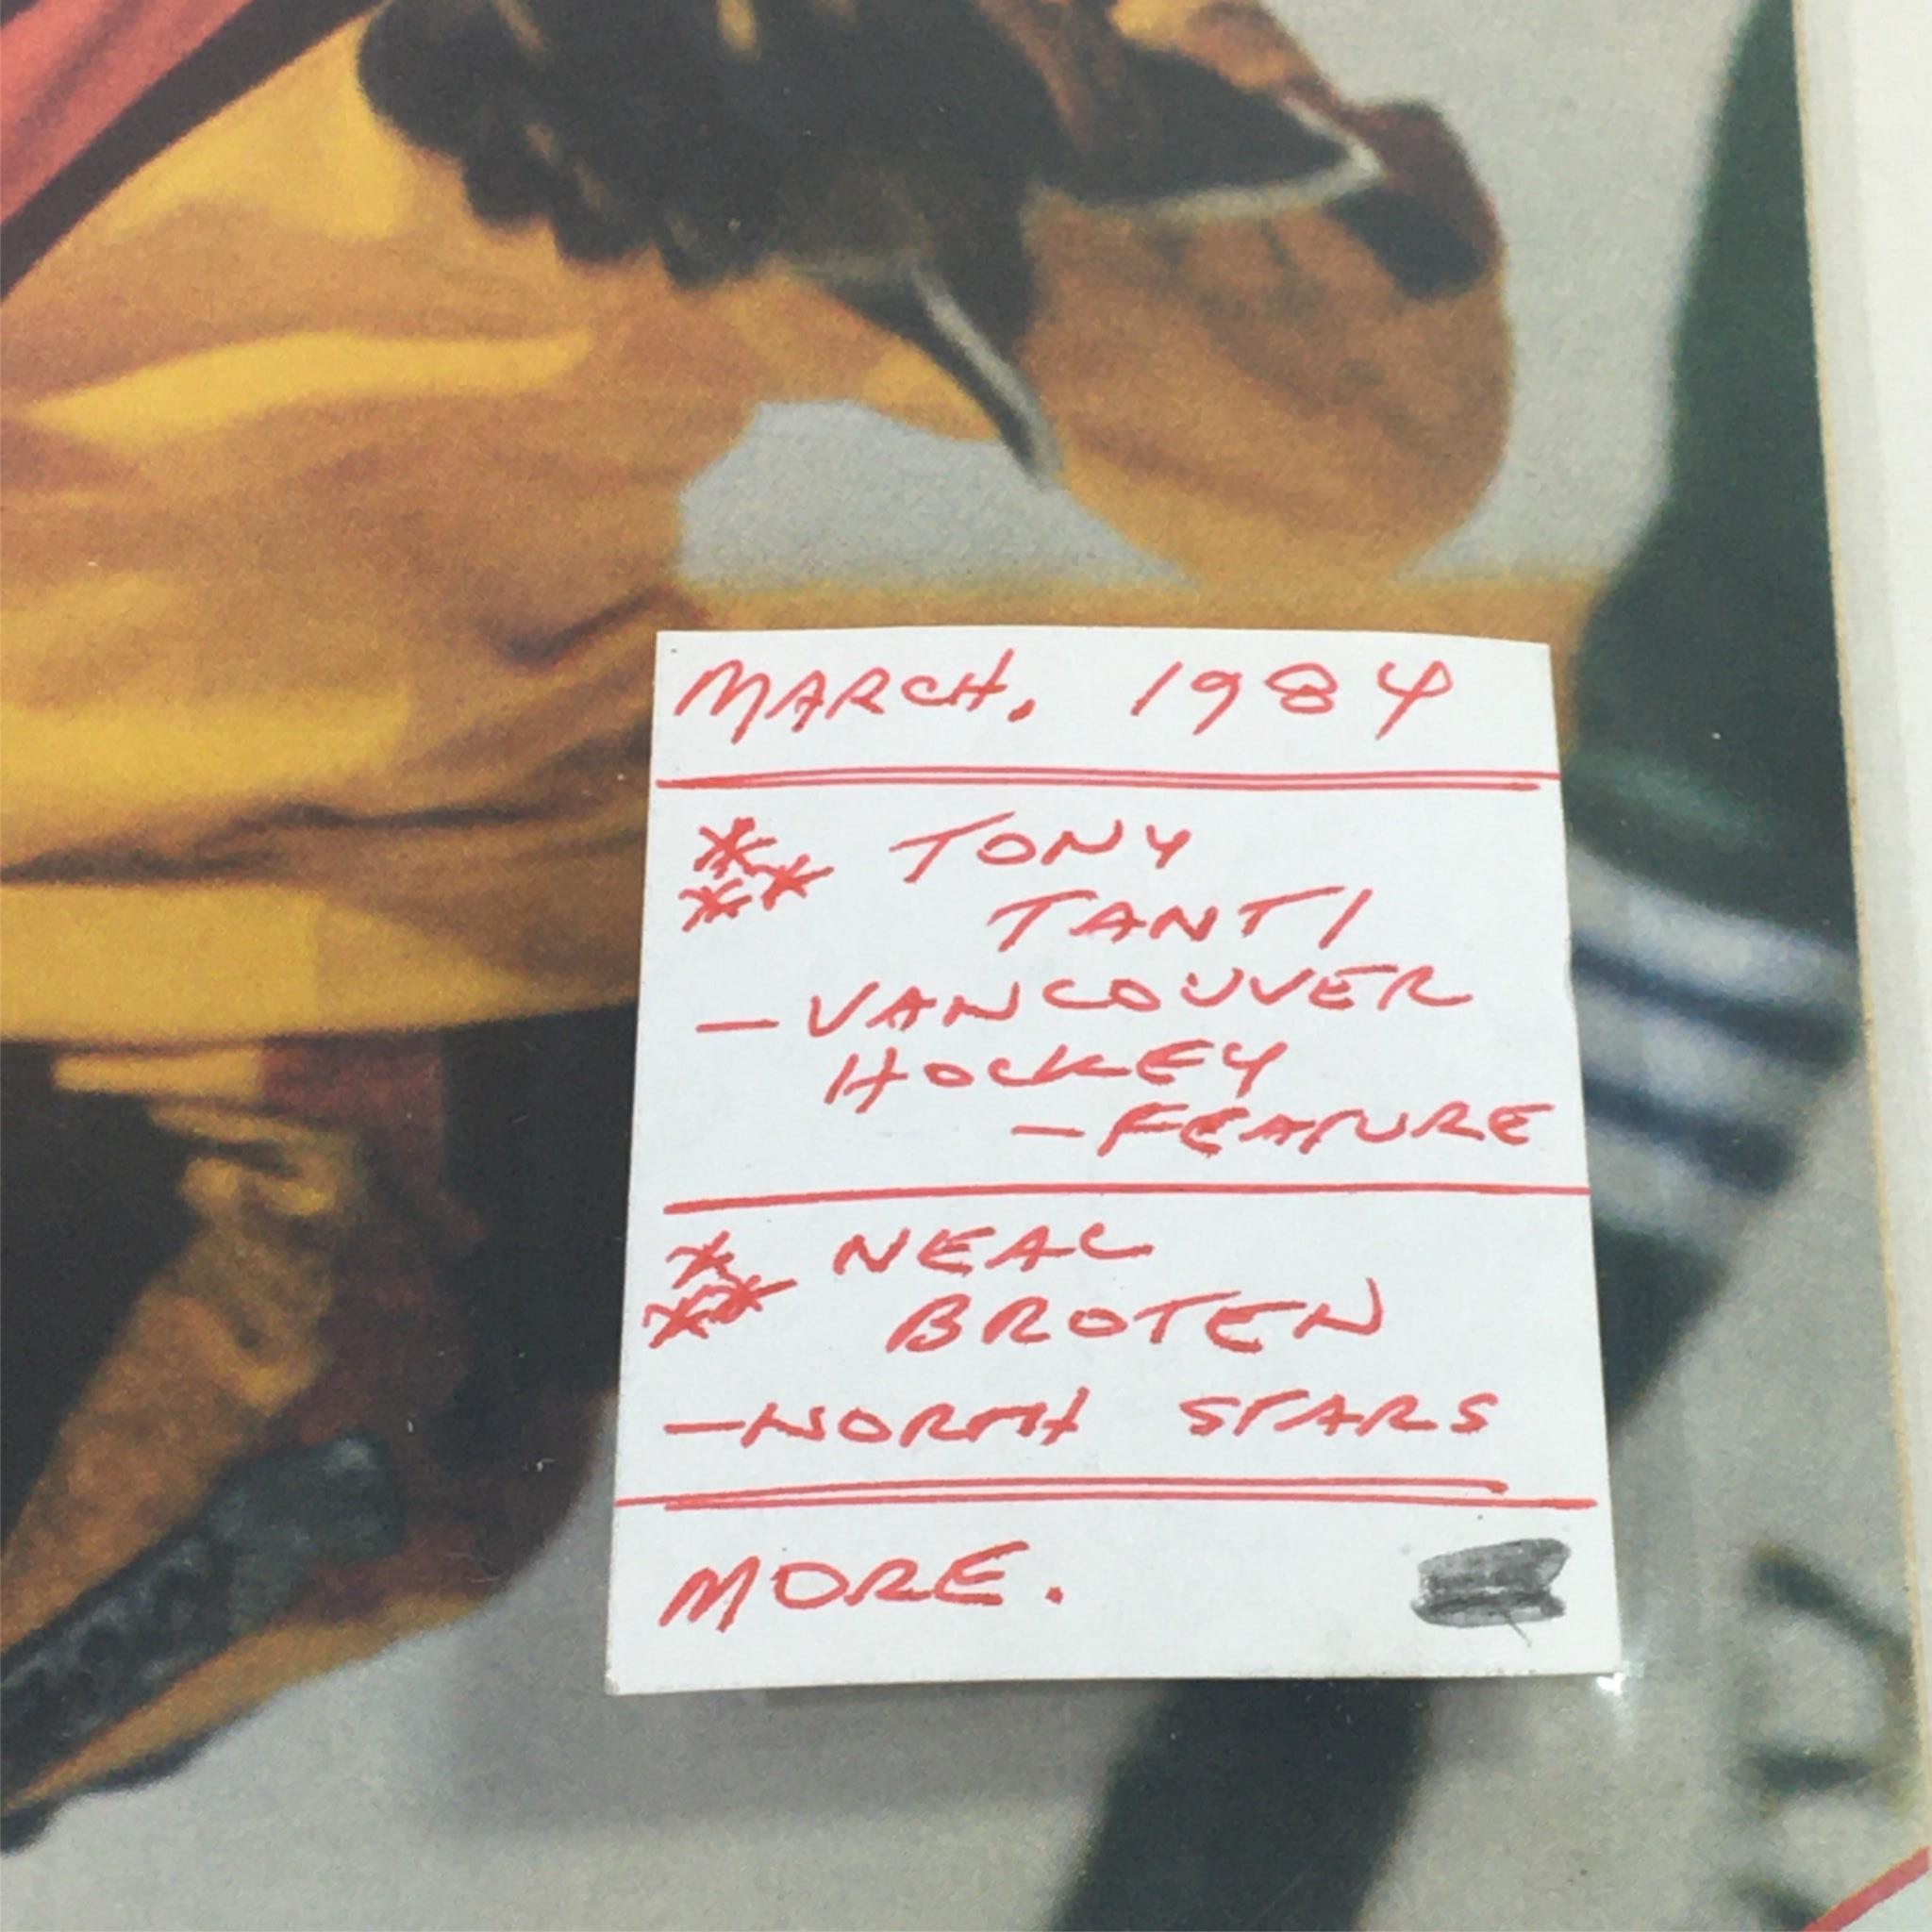 MARCH, 1984
* TONY
** TANTI
- VANCOUVER
HOCKEY
- FEATURE
* NEAL
** BROTEN
- NORTH STARS
MORE.